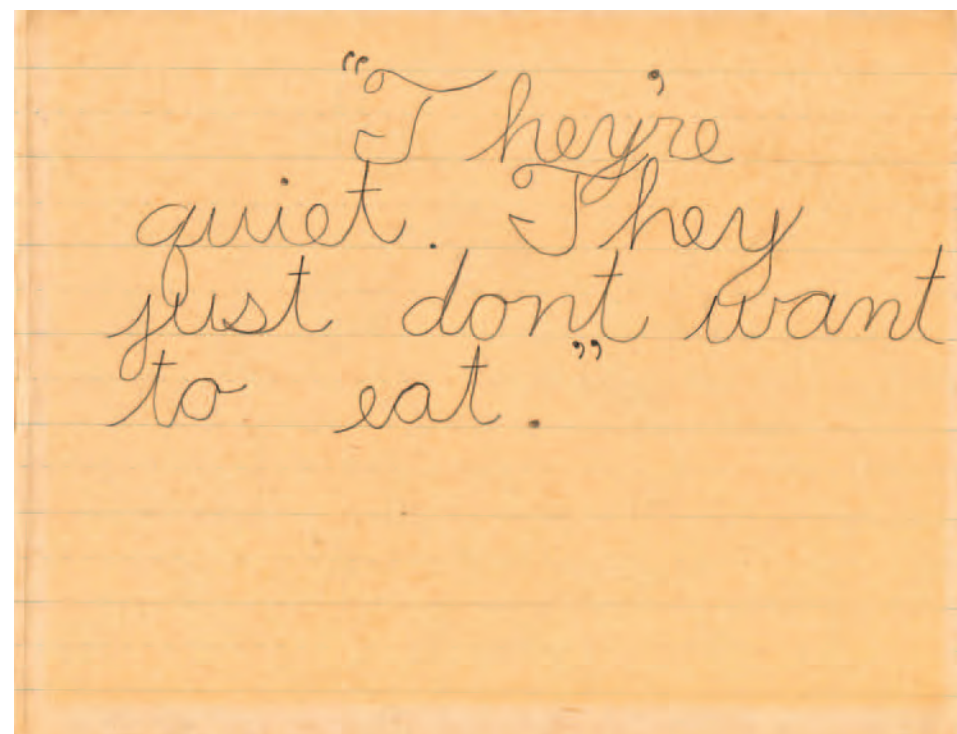 “They’re
quiet. They
just dont want
to eat.”